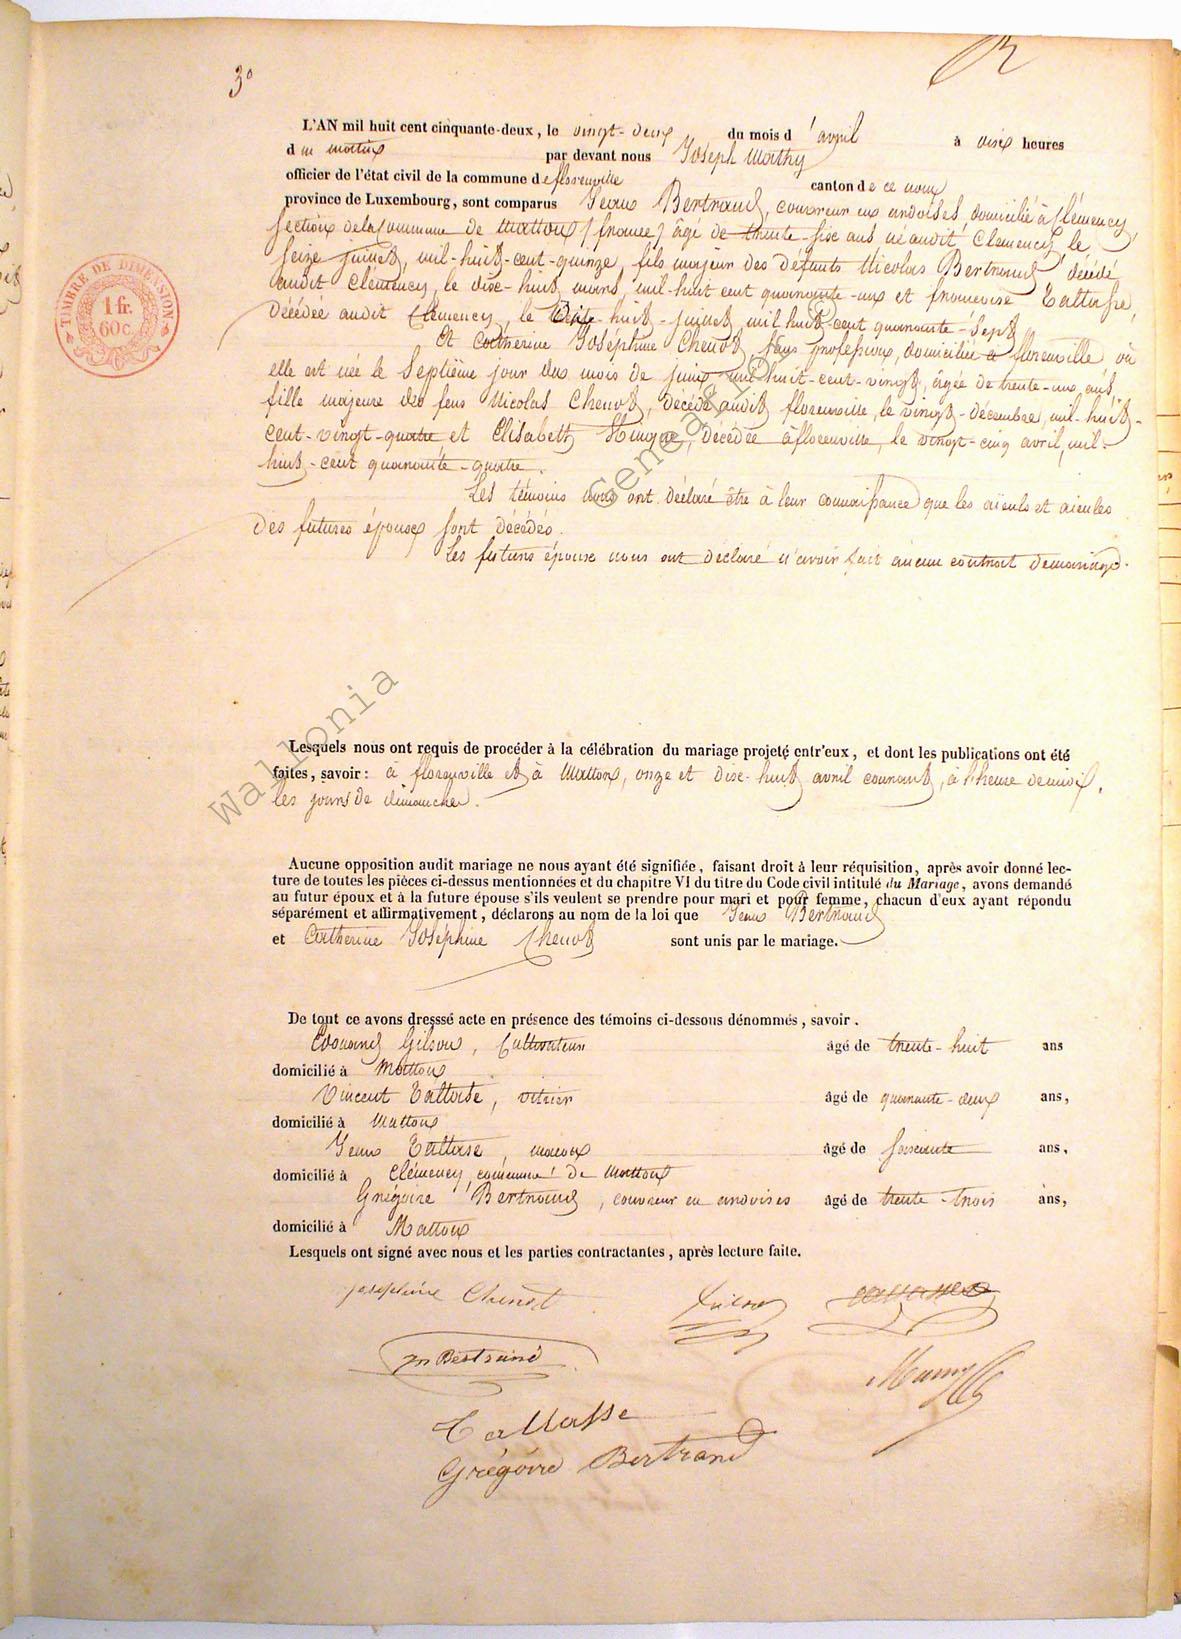 3°
L'AN mil huit cent cinquante-deux, le vingt-deux du mois d'avril à dix heures
du matin par devant nous Joseph Mathy
officier de l'état civil de la commune de florenville canton de ce nom
province de Luxembourg, sont comparus Jean Bertrand, couvreur en ardoises, domicilié à Clémency,
section de la commune de Matton (france) âgé de trente-six ans né audit Clémency, le
seize juillet, mil-huit-cent-quinze, fils majeur des défunts Nicolas Bertrand, décédé
audit Clémency, le dix-huit mars, mil-huit cent quarante-un et françoise Tallasse,
décédée audit Clémency, le huit-juillet, mil huit-cent quarante-sept
Et Catherine Joséphine Chenot, sans profession, domiciliée à florenville où
elle est née le Septième jour du mois de juin mil huit-cent-vingt, âgée de trente-un ans,
fille majeure des feus Nicolas Chenot, décédé audit florenville, le vingt-décembre, mil-huit-
cent-vingt-quatre et Elisabeth, décédée à florenville, le vingt-cinq avril, mil-
huit-cent quarante-quatre.
Les témoins nous ont déclaré être à leur connaissance que les aïeuls et aïeules
des futures époux sont décédés.
Les futurs époux nous ont déclaré n'avoir fait aucun contrat de mariage.
Lesquels nous ont requis de procéder à la célébration du mariage projeté entr'eux, et dont les publications ont été
faites, savoir: à florenville et à Matton, onze et dix-huit avril courant, à l'heure de midi,
les jours de dimanche.
Aucune opposition audit mariage ne nous ayant été signifiée, faisant droit à leur réquisition, après avoir donné lec-
ture de toutes les pièces ci-dessus mentionnées et du chapitre VI du titre du Code civil intitulé du Mariage, avons demandé
au futur époux et à la future épouse s'ils veulent se prendre pour mari et pour femme, chacun d'eux ayant répondu
séparément et affirmativement, déclarons au nom de la loi que Jean Bertrand
et Catherine Joséphine Chenot sont unis par le mariage.
De tout ce avons dresssé acte en présence des témoins ci-dessous dénommés, savoir.
Edouard Gilson, Cultivateur âgé de trente-huit ans
domicilié à Matton
Vincent Tallasse, vitrier âgé de quarante-deux ans,
domicilié à Matton
Jean Tallasse, maçon âgé de soixante ans,
domicilié à Clémency, commune de Matton
Grégoire Bertrand, couvreur en ardoises âgé de trente-trois ans,
domicilié à Matton
Lesquels ont signé avec nous et les parties contractantes, après lecture faite.
joséphine Chenot Gilson
jn Bertrand
Tallasse
Grégoire Bertrand
TIMBRE DE DIMENSION
1 fr.
60 c.
Wallonia Genealogy